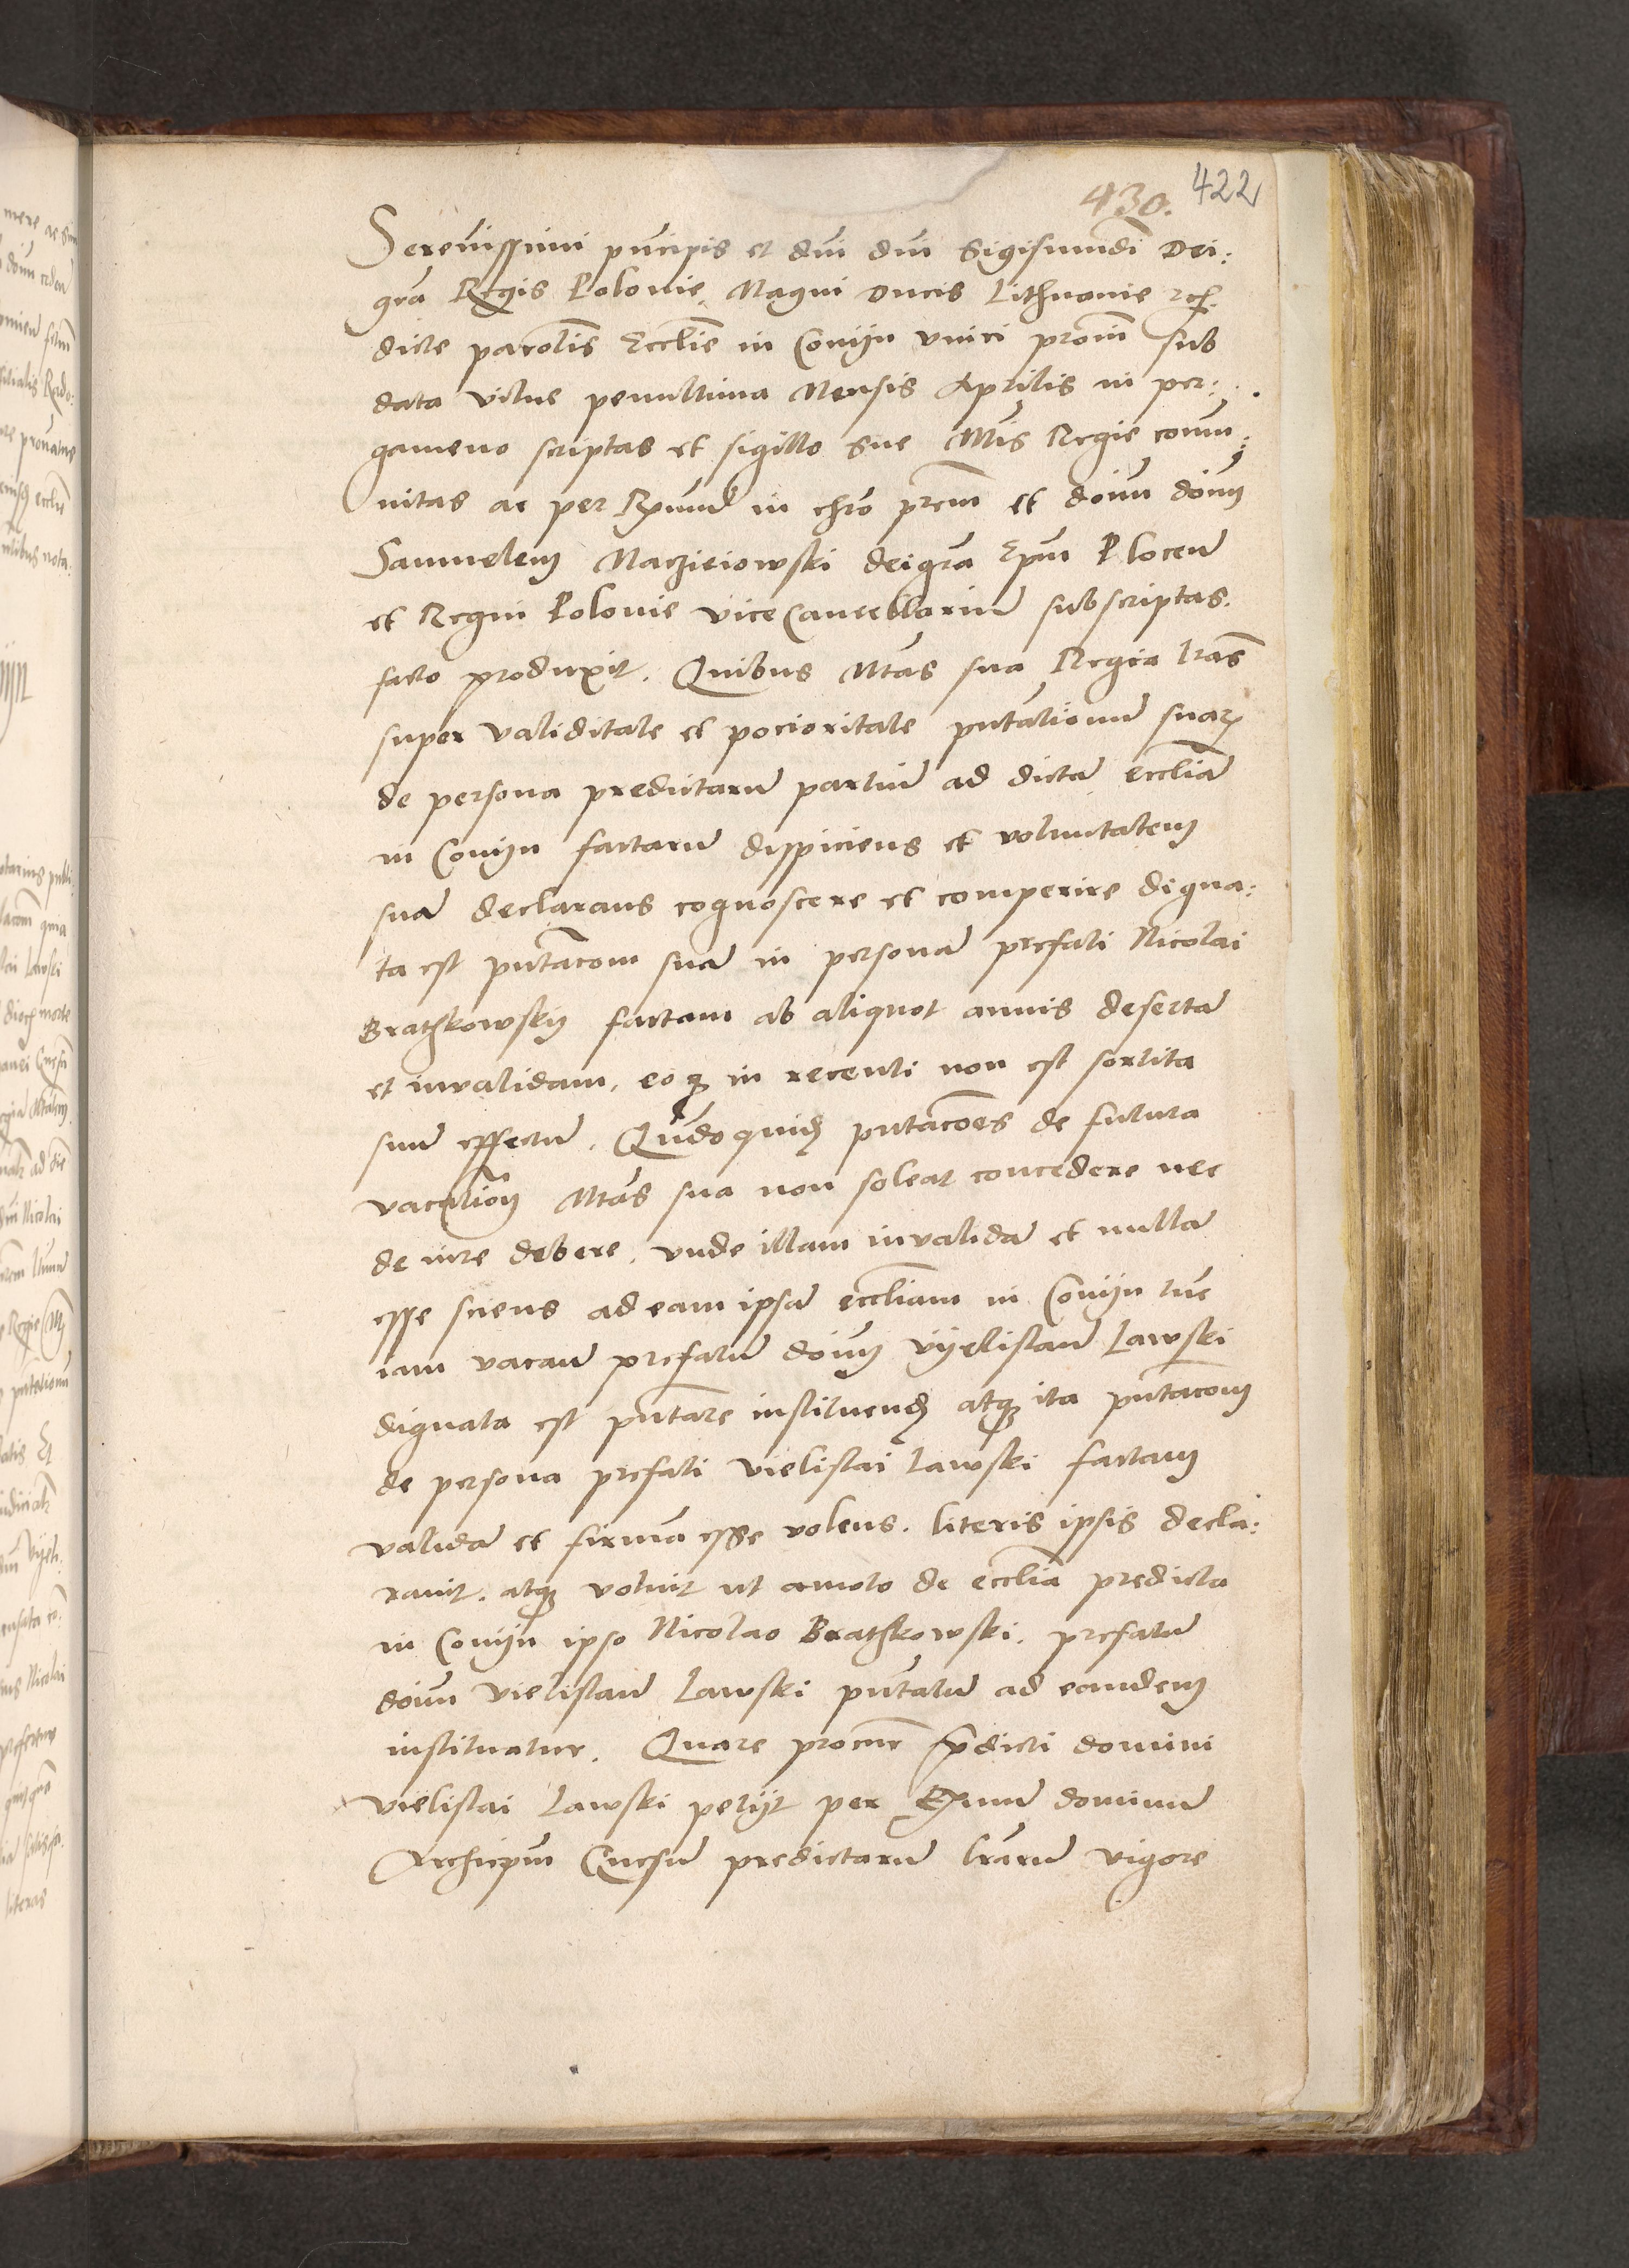 430. 422
Serenissimi pncipis et dni dni Sigismundi Dei:
gra Regis Polonie, Magni Ducis Lithuanie
dicte parolis Ecclie in Conyn unici sub
data Vilne penultima Mensis Aprilis in per:
gameno scriptas et sigillo sue Mtis Regie commu:
nitas ac per Rxmum in chro prem et dnum dnum
Samuelem Maczieiowski dei gra Epum Plocen
et Regni Polonie viceCancellarium subscriptas.
facto produxit. Quibus Mtas sua Regia lras
super validitate et pocioritate pntationum suar
de persona predictarum partium ad dictam eccliam
in Conyn factarum dispiciens et voluntatem
suam declarans cognoscere et comperire digna:
ta est pntacom suam in personam prefati Nicolai
Brathkowsky factam ab aliquot annis desertam
et invalidam, eo q in recenti non est sortita
suum effectum. Qndoquidem pntacoes de futura
vacation Mtas sua non soleat concedere nec
de iure debere, unde illam invalidam et nullam
esse sciens ad eam ipsam eccliam in Conyn tunc
iam vacan prefatum dnum Vyelislaum Lawski
dignata est pntare instituend atq ita pntacom
de persona prefati Vielislai Lawski factam
validam et firmam esse volens, literis ipsis decla:
ravit, atq voluit ut amoto de ecclia predicta
in Conyn ipso Nicolao Brathkowski, prefatum
dnum Vielislaum Lawski pntatum ad eandem
instituatur. Quare procur pdicti domini
Vielislai Lawski petijt per Rxmum dominum
Archiepum Gnesn predictarum lrarum vigore